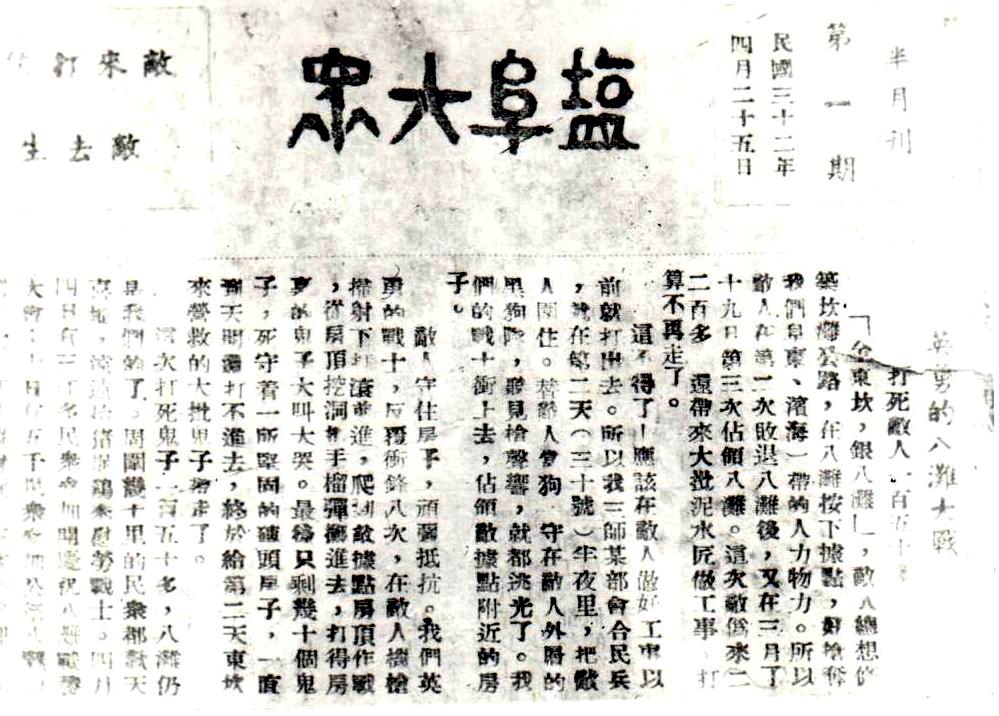 半月刊
第一期
民國三十二年
四月二十五日
盐阜大眾
敵來打
敵去生
英勇的八灘大戰
打死敵人一百五十
「金東坎，銀八灘」，敵人總想修
築坎灘公路，在八灘按下據點，好搶奪
我們阜東、濱海一帶的人力物力。所以
敵人在第一次敗退八灘後，又在三月了
十九日第三次佔領八灘。這次敵僞來二
二百多 還帶來大批泥水匠做工事 打
算不再走了。
這不得了！應該在敵人做好工事以
前就打出去。所以我三師某部會合民兵
，就在第二天（三十號）半夜里，把敵
人圍住。替敵人當狗 守在敵人外層的
黑狗隊，聽見槍聲響，就都洮光了。我
們的戰士衝上去，佔領敵據點附近的房
子。
敵人守住房子，頑彊抵抗。我們英
勇的戰士，反覆衝鋒八次，在敵人機槍
掃射下打滾前進，爬到敵據點房頂作戰
，從房頂挖洞把手榴彈擲進去，打得房
裏的鬼子大叫大哭。最後只剩幾十個鬼
子，死守着一所堅固的磚頭房子，一直
到天明還打不進去，終於給第二天東坎
來營救的大批鬼子帶走了。
這次打死鬼子一百五十多，八灘仍
是我們的了。周圍幾十里的民衆都歡天
慰勞戰士。四月
四日有三千多民衆參加開慶祝八灘戰勝
大會